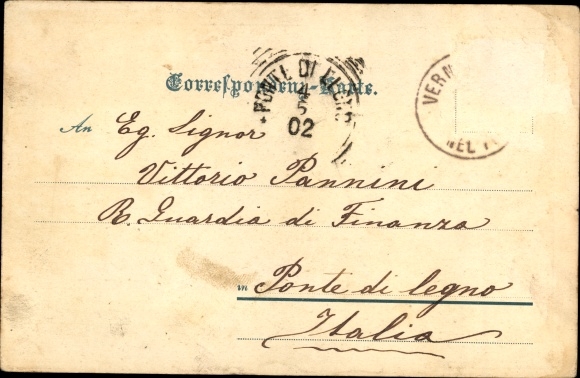 Correspondenz-Karte.
PONTE DI LEGNO
4
5
02
VERM
NEL
An Eg. Signor
Vittorio Pannini
R. Guardia di Finanza
in Ponte di legno
Italia